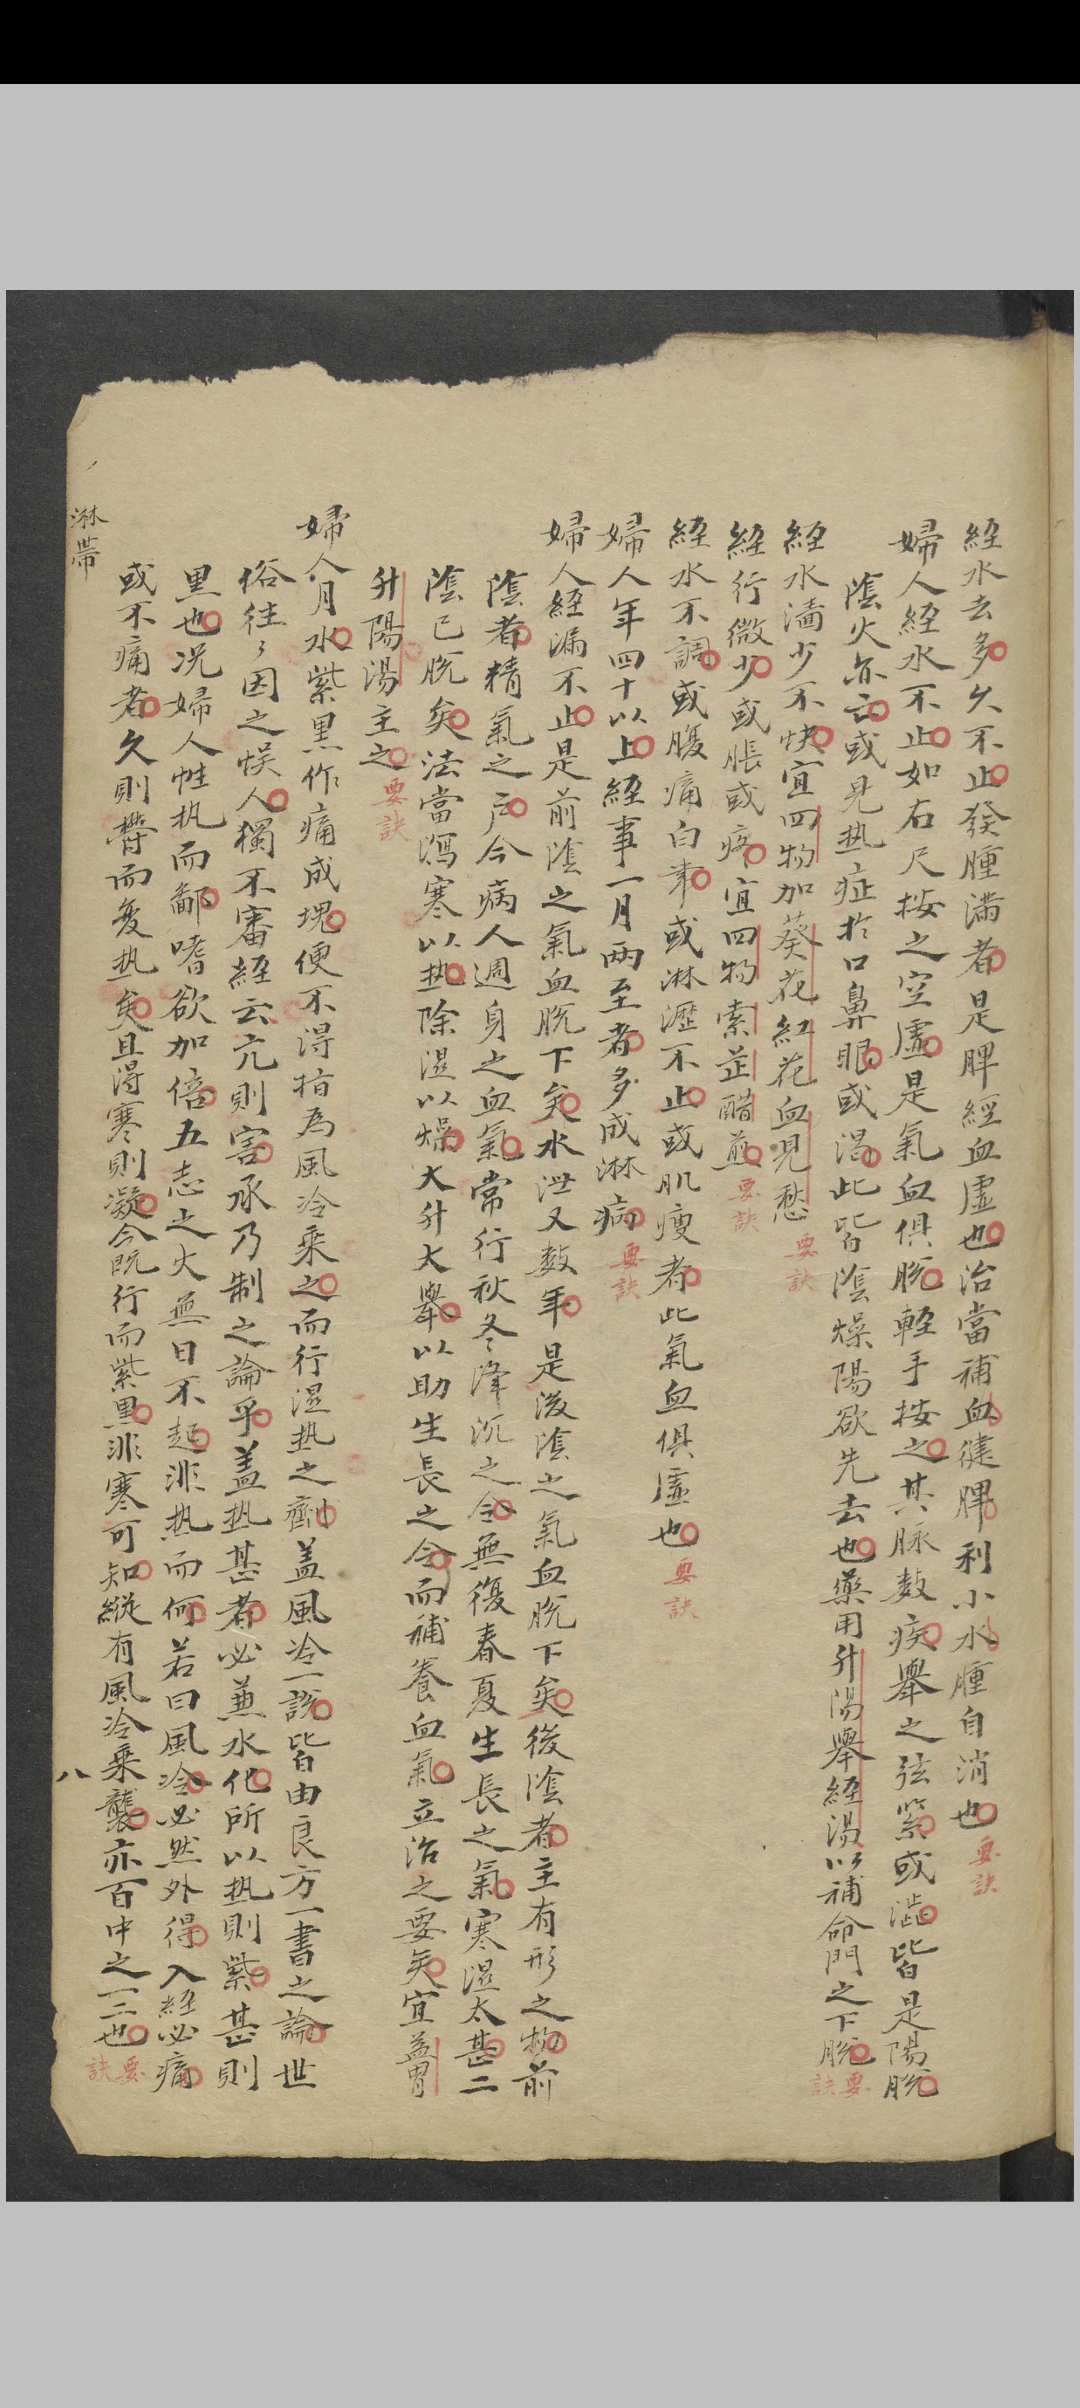 經水去多久不止發腫滿者是脾經血虛也治當補血健脾利小水腫自消也要訣
婦人經水不止如右尺按之空虛是氣血俱脫輕手按之其脉數疾舉之弦緊或澁皆是陽脫
陰火亦亡或見热症於口鼻眼或渴此皆陰燥陽欲先去也藥用升陽舉經湯以補命門之下脫要訣
經水濇少不快宜四物加葵花紅花血見愁要訣
經行微少或脹或疼宜四物索芷醋煎要訣
經水不調或腹痛白帶或淋瀝不止或肌瘦者此氣血俱虛也要訣
婦人年四十以上經事一月兩至者多成淋病要訣
婦人經漏不止是前陰之氣血脫下矣水泄又數年是後陰之氣血脫下矣後陰者主有形之物前
陰者精氣之戶今病人週身之血氣常行秋冬降沉之令無復春夏生長之氣寒湿太甚二
陰已脫矣法當瀉寒以热除湿以燥大升大舉以助生長之令而補養血氣立治之要矣宜益胃
升陽湯主之要訣
婦人月水紫黑作痛成塊便不得指為風冷乘之而行湿热之劑盖風冷一說皆由良方一書之論世
俗往々因之悞人獨不審經云亢則害承乃制之論乎盖热甚者必兼水化所以热則紫甚則
黑也况婦人性执而鄙嗜欲加倍五志之火無日不起非热而何若曰風冷必然外得入經必痛
或不痛者久則欝而复热矣且得寒則凝今既行而紫黑非寒可知縱有風冷乘襲亦百中之一二也要訣
淋帶
八